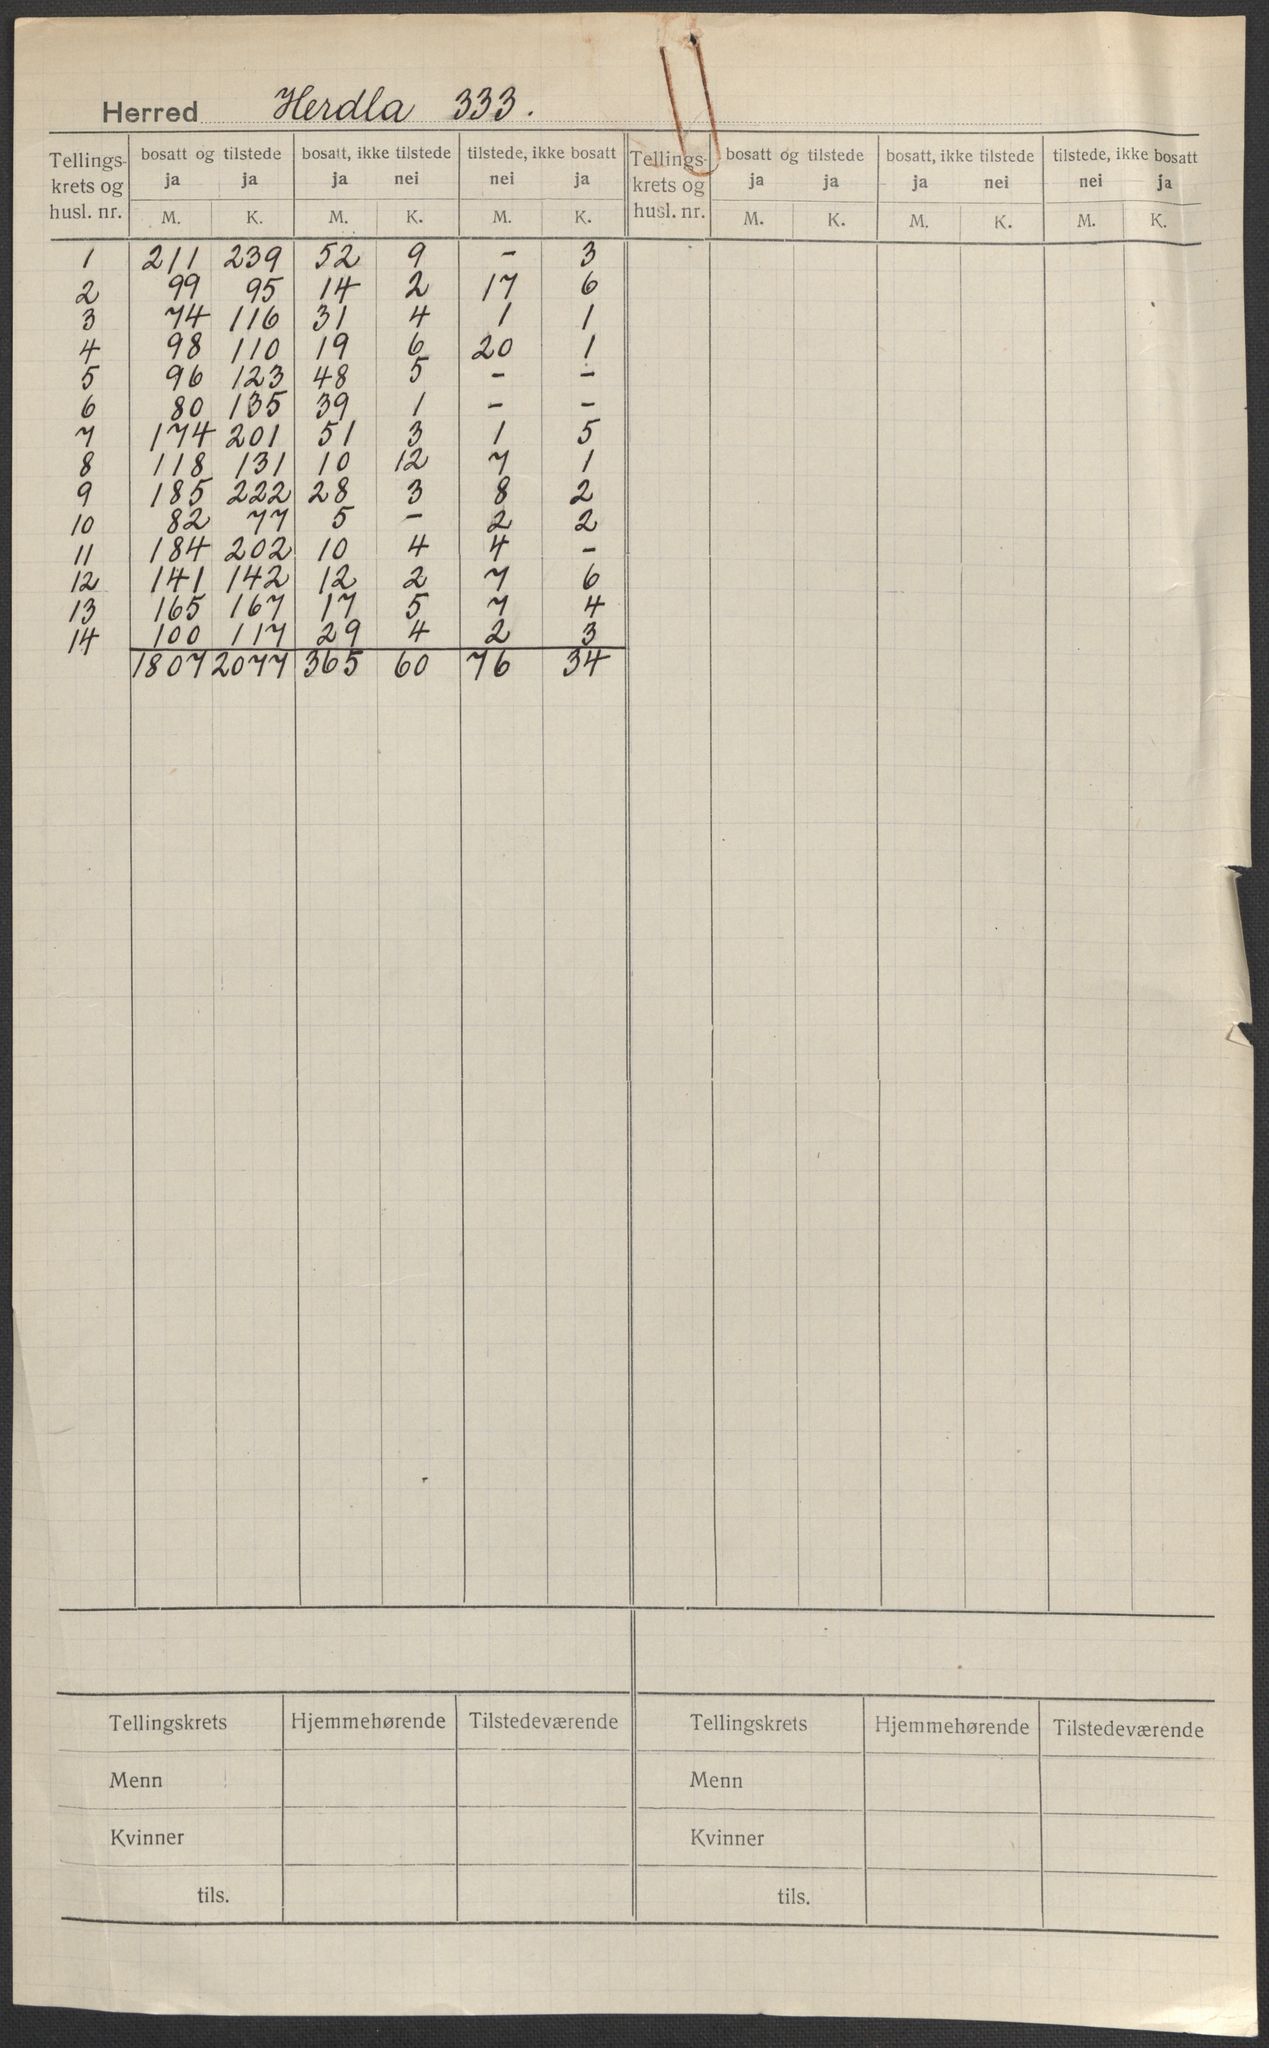 Herred Herdla 333.
Tellings-krets og husl. nr. | bosatt og tilstede | bosatt, ikke tilstede | tilstede, ikke bosatt | Tellings-krets og husl. nr. | bosatt og tilstede | bosatt, ikke tilstede | tilstede, ikke bosatt
ja ja ja nei nei ja ja ja ja nei nei ja
M. K. M. K. M. K. M. K. M. K. M. K.
1 211 239 52 9 - 3
2 99 95 14 2 17 6
3 74 116 31 4 1 1
4 98 110 19 6 20 1
5 96 123 48 5 - -
6 80 135 39 1 - -
7 174 201 51 3 1 5
8 118 131 10 12 7 1
9 185 222 28 3 8 2
10 82 77 5 - 2 2
11 184 202 10 4 4 -
12 141 142 12 2 7 6
13 165 167 17 5 7 4
14 100 117 29 4 2 3
1807 2077 365 60 76 34
Tellingskrets Hjemmehørende Tilstedeværende Tellingskrets Hjemmehørende Tilstedeværende
Menn Menn
Kvinner Kvinner
tils. tils.